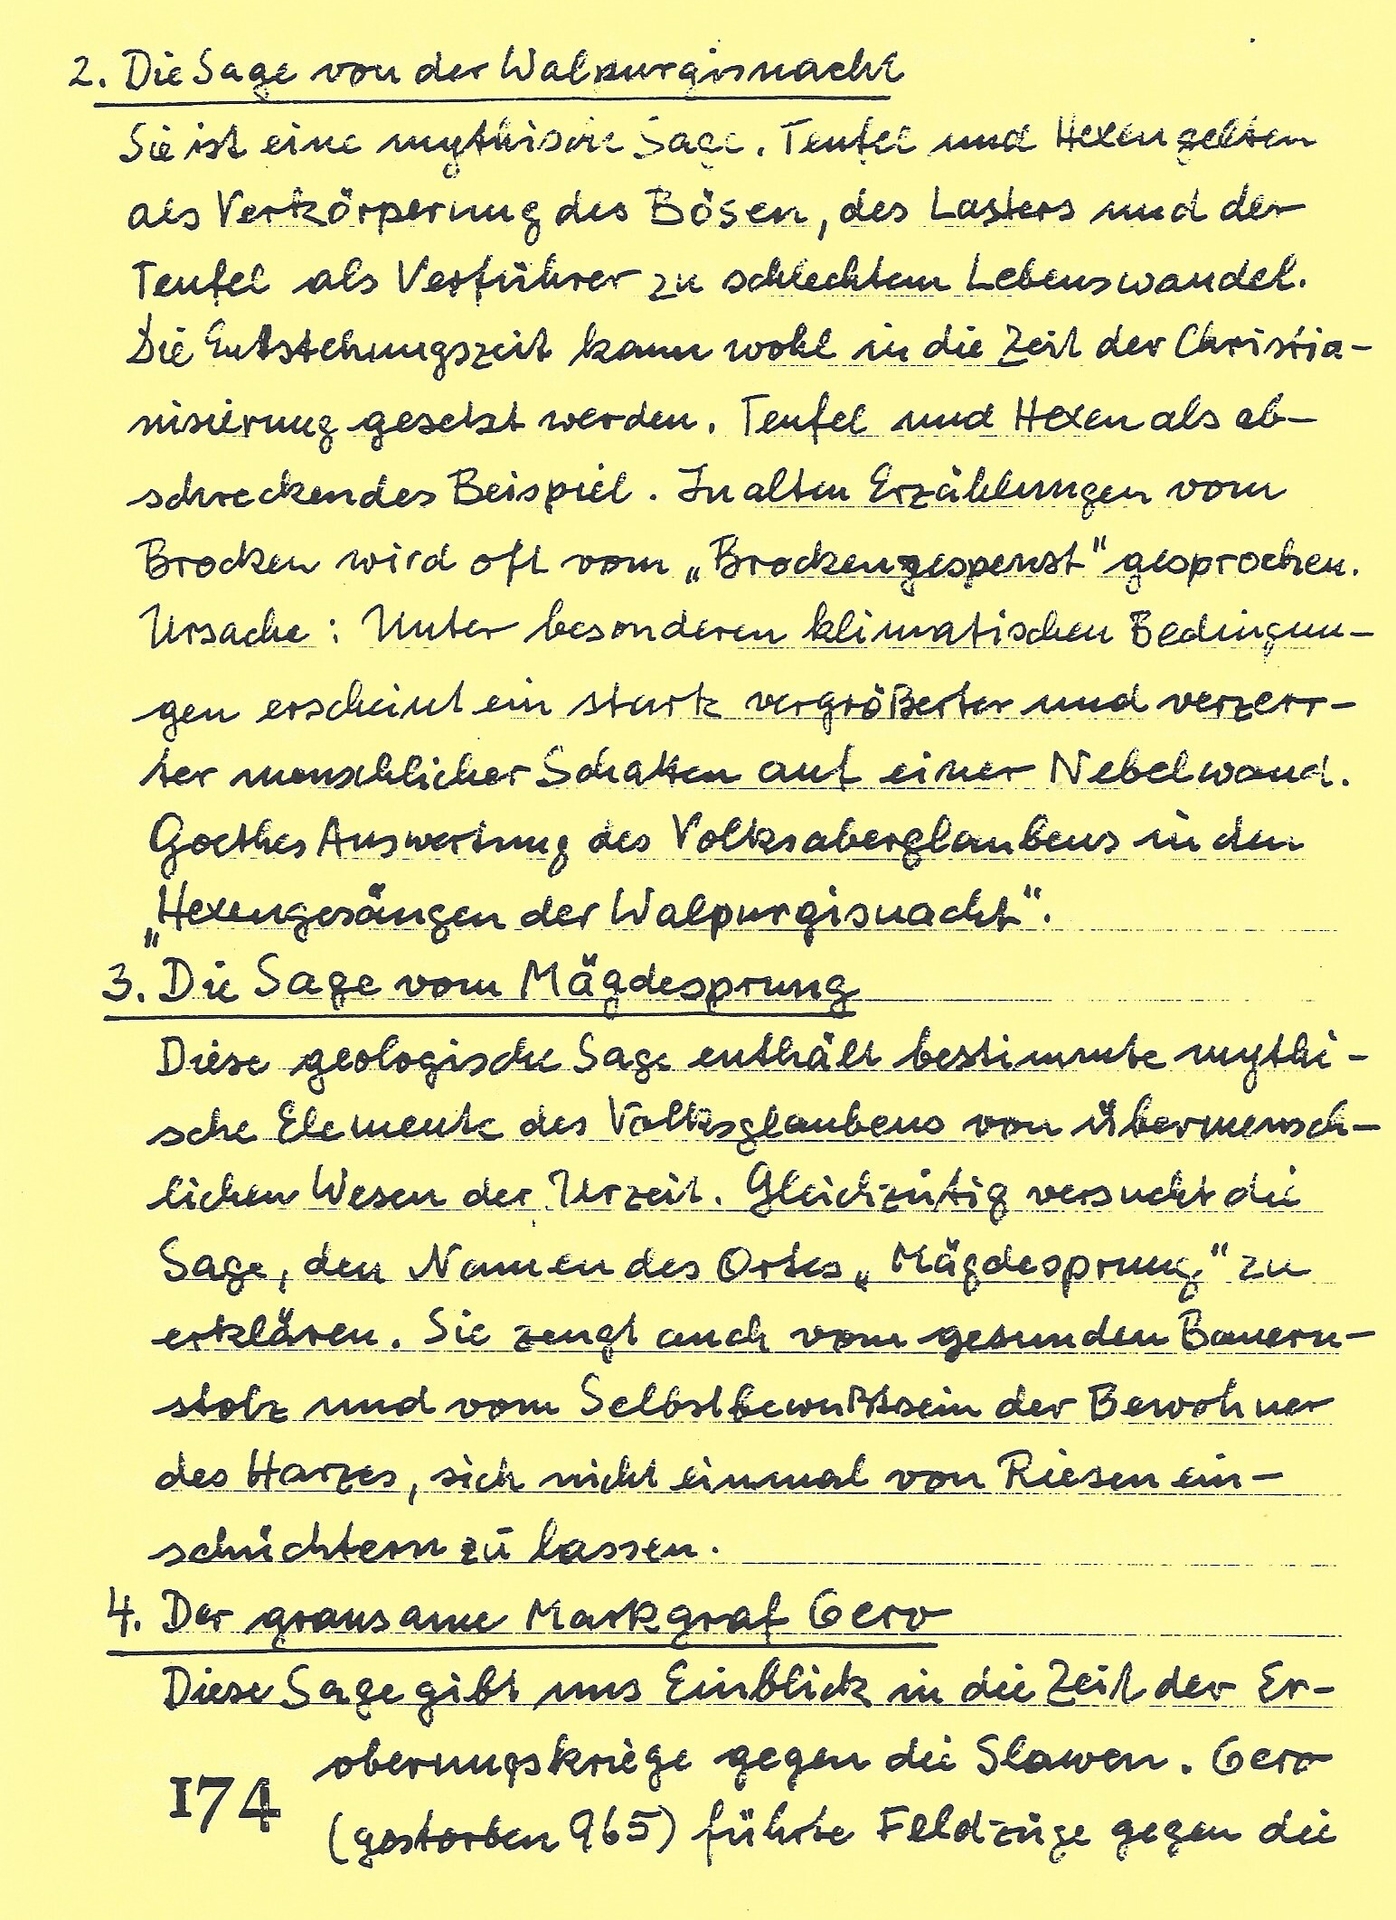 2. Die Sage von der Walpurgisnacht
Sie ist eine mythische Sage. Teufel und Hexen gelten
als Verkörperung des Bösen, des Lasters und der
Teufel als Verführer zu schlechtem Lebenswandel.
Die Entstehungszeit kann wohl in die Zeit der Christia-
nisierung gesetzt werden. Teufel und Hexen als ab-
schreckendes Beispiel. In alten Erzählungen vom
Brocken wird oft vom „Brockengespenst" gesprochen.
Ursache: Unter besonderen klimatischen Bedingun-
gen erscheint ein stark vergrößerter und verzerr-
ter menschlicher Schatten auf einer Nebelwand.
Goethes Auswertung des Volksaberglaubens in den
„Hexengesängen der Walpurgisnacht".
3. Die Sage vom Mägdesprung
Diese geologische Sage enthält bestimmte mythi-
sche Elemente des Volksglaubens von übermensch-
lichen Wesen der Urzeit. Gleichzeitig versucht die
Sage, den Namen des Ortes „Mägdesprung" zu
erklären. Sie zeugt auch vom gesunden Bauern-
stolz und vom Selbstbewußtsein der Bewohner
des Harzes, sich nicht einmal von Riesen ein-
schüchtern zu lassen.
4. Der grausame Markgraf Gero
Diese Sage gibt uns Einblick in die Zeit der Er-
oberungskriege gegen die Slawen. Gero
174
(gestorben 965) führte Feldzüge gegen die